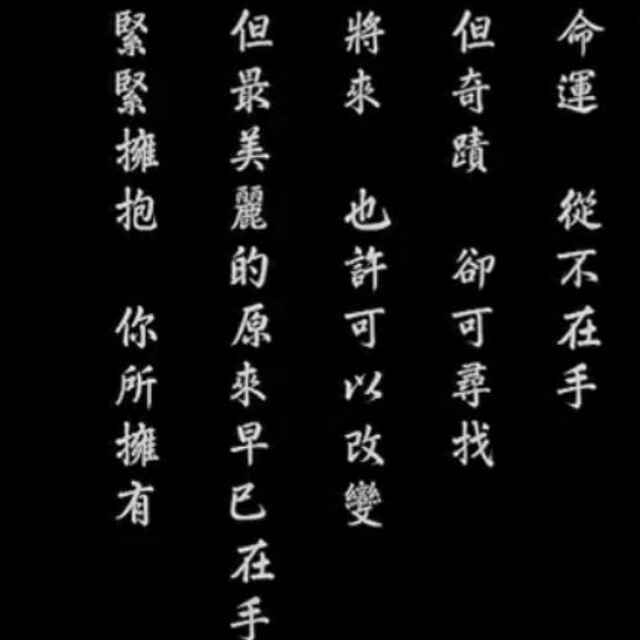 命運 從不在手
但奇蹟 卻可尋找
將來 也許可以改變
但最美麗的原來早已在手
緊緊擁抱 你所擁有